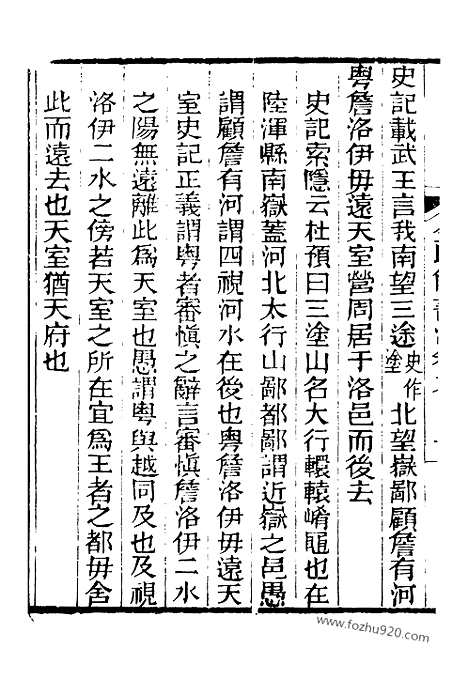 史記載武王言我南望三途史作塗北望嶽鄙顧詹有河
粤詹洛伊毋遠天室營周居于洛邑而後去
史記索隱云杜預曰三塗山名大行轘轅崤黽也在
陸渾縣南嶽葢河北太行山鄙都鄙謂近嶽之邑愚
謂顧詹有河謂四視河水在後也粤詹洛伊毋遠天
室史記正義謂粤者審愼之辭言審愼詹洛伊二水
之陽無遠離此爲天室也愚謂粤與越同及也及視
洛伊二水之傍若天室之所在宜爲王者之都毋舍
此而遠去也天室猶天府也
www.fozhu920.com